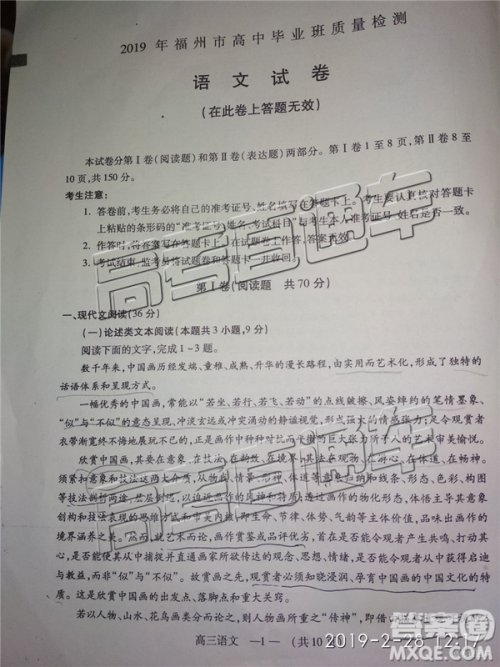 2019 年福州市高中毕业班质量检测
语 文 试 卷
(在此卷上答题无效)
本试卷分第Ⅰ卷(阅读题)和第Ⅱ卷(表达题)两部分。第Ⅰ卷 1 至 8 页,第Ⅱ卷 8 至
10 页,共 150 分。
考生注意:
1. 答卷前,考生务必将自己的准考证号、姓名填写在答题卡上。考生要认真核对答题卡
上粘贴的条形码的“准考证号、姓名、考试科目”与考生本人准考证号、姓名是否一致。
2. 作答时,将答案写在答题卡上,在试题卷上作答,答案无效。
3. 考试结束,监考员将试题卷和答题卡一并收回。
第Ⅰ卷(阅读题 共 70 分)
一、现代文阅读(36 分)
(一)论述类文本阅读(本题共 3 小题,9 分)
阅读下面的文字,完成 1~3 题。
数千年来,中国画历经发端、童稚、成熟、升华的漫长路程,由实用而艺术化,形成了独特的
话语体系和呈现方式。
一幅优秀的中国画,常能以“若坐、若行、若飞、若动”的点线皴擦、风姿绰约的笔情墨象、
“似”与“不似”的意态呈现、冲淡玄远或冲突涌动的静谧视觉,形成强大的情感张力;足令观赏者
衣带渐宽终不悔地展玩不已的,正是画作中种种对抗而平衡的巨大张力所予人的艺术审美愉悦。
欣赏中国画,其要在意象、在技法、在韵致、在境界,其关在
须紧扣意象和技法这两大介质,从
等技法剖析
和技法表现的思维方法和审美内核,即生命、节律、体势、气韵等主体价值,品味出画作的
境界涵养之美。然而,就艺术而论,画作赏鉴或品评优劣,首在是否能令观者产生共鸣、打动其
心,是否能使观者从中捕捉并直通画家所欲传达的观念、思想、情绪,是否能令观者从中获得启迪
与教益,而非“似”与“不似”。故赏画之先,观赏者必须知晓浸润、孕育中国画的中国文化的特
质。这是欣赏中国画的出发点、落脚点和重大关窍。
若以人物、山水、花鸟画类分而论之,则人物画所重之“传神”,即借
高三语文 —1— (共 10
2019-2-28 12:17
高考直通车
答案圈
MXQE.COM